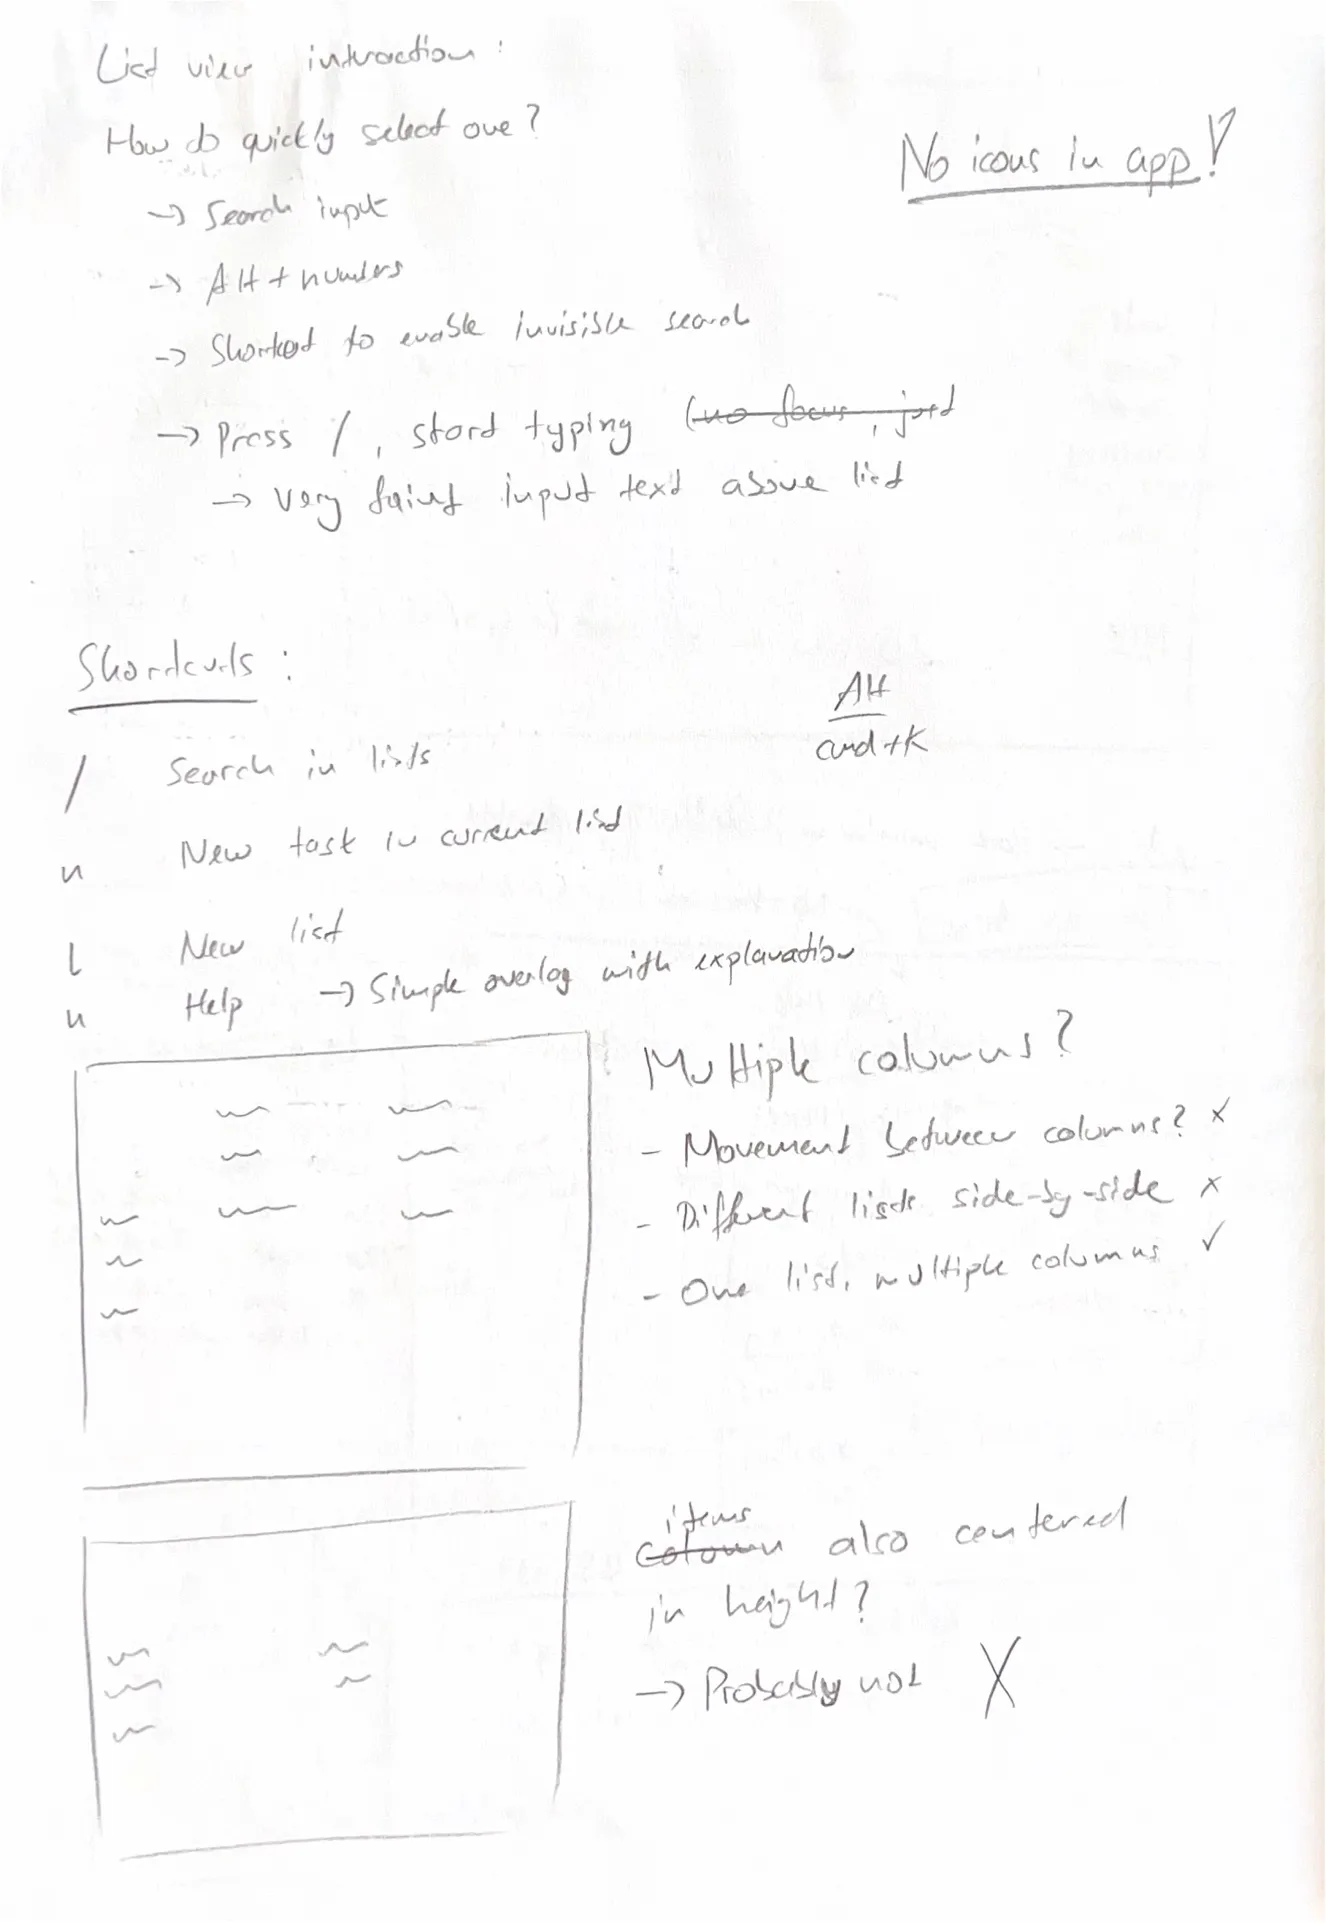 List view interaction:
How do quickly select one?
No icons in app!
→ Search input
→ Alt + numbers
→ Shortcut to enable invisible search
→ Press /, start typing (no focus, just
→ very faint input text above list
Shortcuts:
Alt
cmd+K
/ Search in lists
n New task in current list
l New list
Help → Simple overlay with explanation
Multiple columns?
- Movement between columns? x
- Different lists side-by-side x
- One list, multiple columns ✓
items
Column also centered
in height?
→ Probably not X